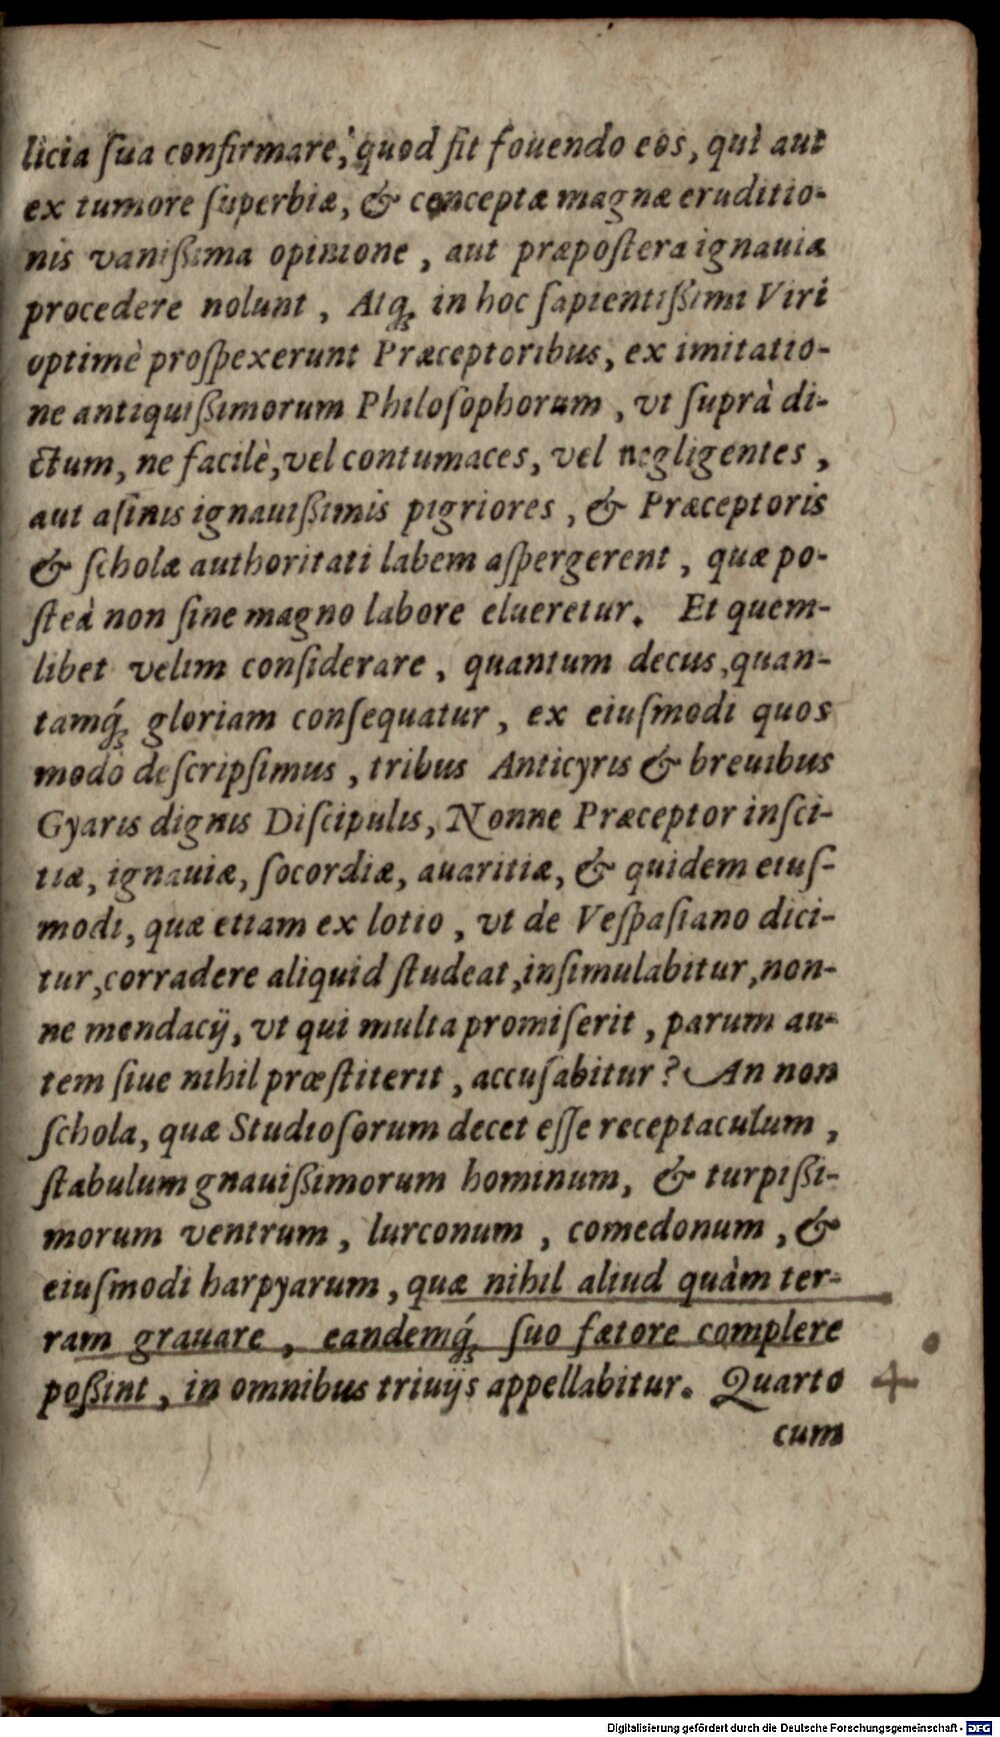 licia ſua confirmare, quod fit fouendo eos, qui aut
ex tumore ſuperbiæ, & conceptæ magnæ eruditio-
nis vanißima opinione, aut præpoſtera ignauia
procedere nolunt, Atq; in hoc ſapientißimi Viri
optimè proſpexerunt Præceptoribus, ex imitatio-
ne antiquißimorum Philoſophorum, vt ſuprà di-
ctum, ne facilè, vel contumaces, vel negligentes,
aut aſinis ignauißimis pigriores, & Præceptoris
& ſcholæ authoritati labem aſpergerent, quæ po-
ſteà non ſine magno labore elueretur. Et quem-
libet velim conſiderare, quantum decus, quan-
tamq́; gloriam conſequatur, ex eiuſmodi quos
modò deſcripſimus, tribus Anticyris & breuibus
Gyaris dignis Diſcipulis, Nonne Præceptor inſci-
tiæ, ignauiæ, ſocordiæ, auaritiæ, & quidem eiuſ-
modi, quæ etiam ex lotio, vt de Veſpaſiano dici-
tur, corradere aliquid ſtudeat, inſimulabitur, non-
ne mendacij, vt qui multa promiſerit, parum au-
tem ſiue nihil præſtiterit, accuſabitur? An non
ſchola, quæ Studioſorum decet eſſe receptaculum,
ſtabulum gnauißimorum hominum, & turpißi-
morum ventrum, lurconum, comedonum, &
eiuſmodi harpyarum, quæ nihil aliud quàm ter-
ram grauare, eandemq́; ſuo fætore complere
poßint, in omnibus triuijs appellabitur. Quarto
cum
Digitalisierung gefördert durch die Deutsche Forschungsgemeinschaft - DFG